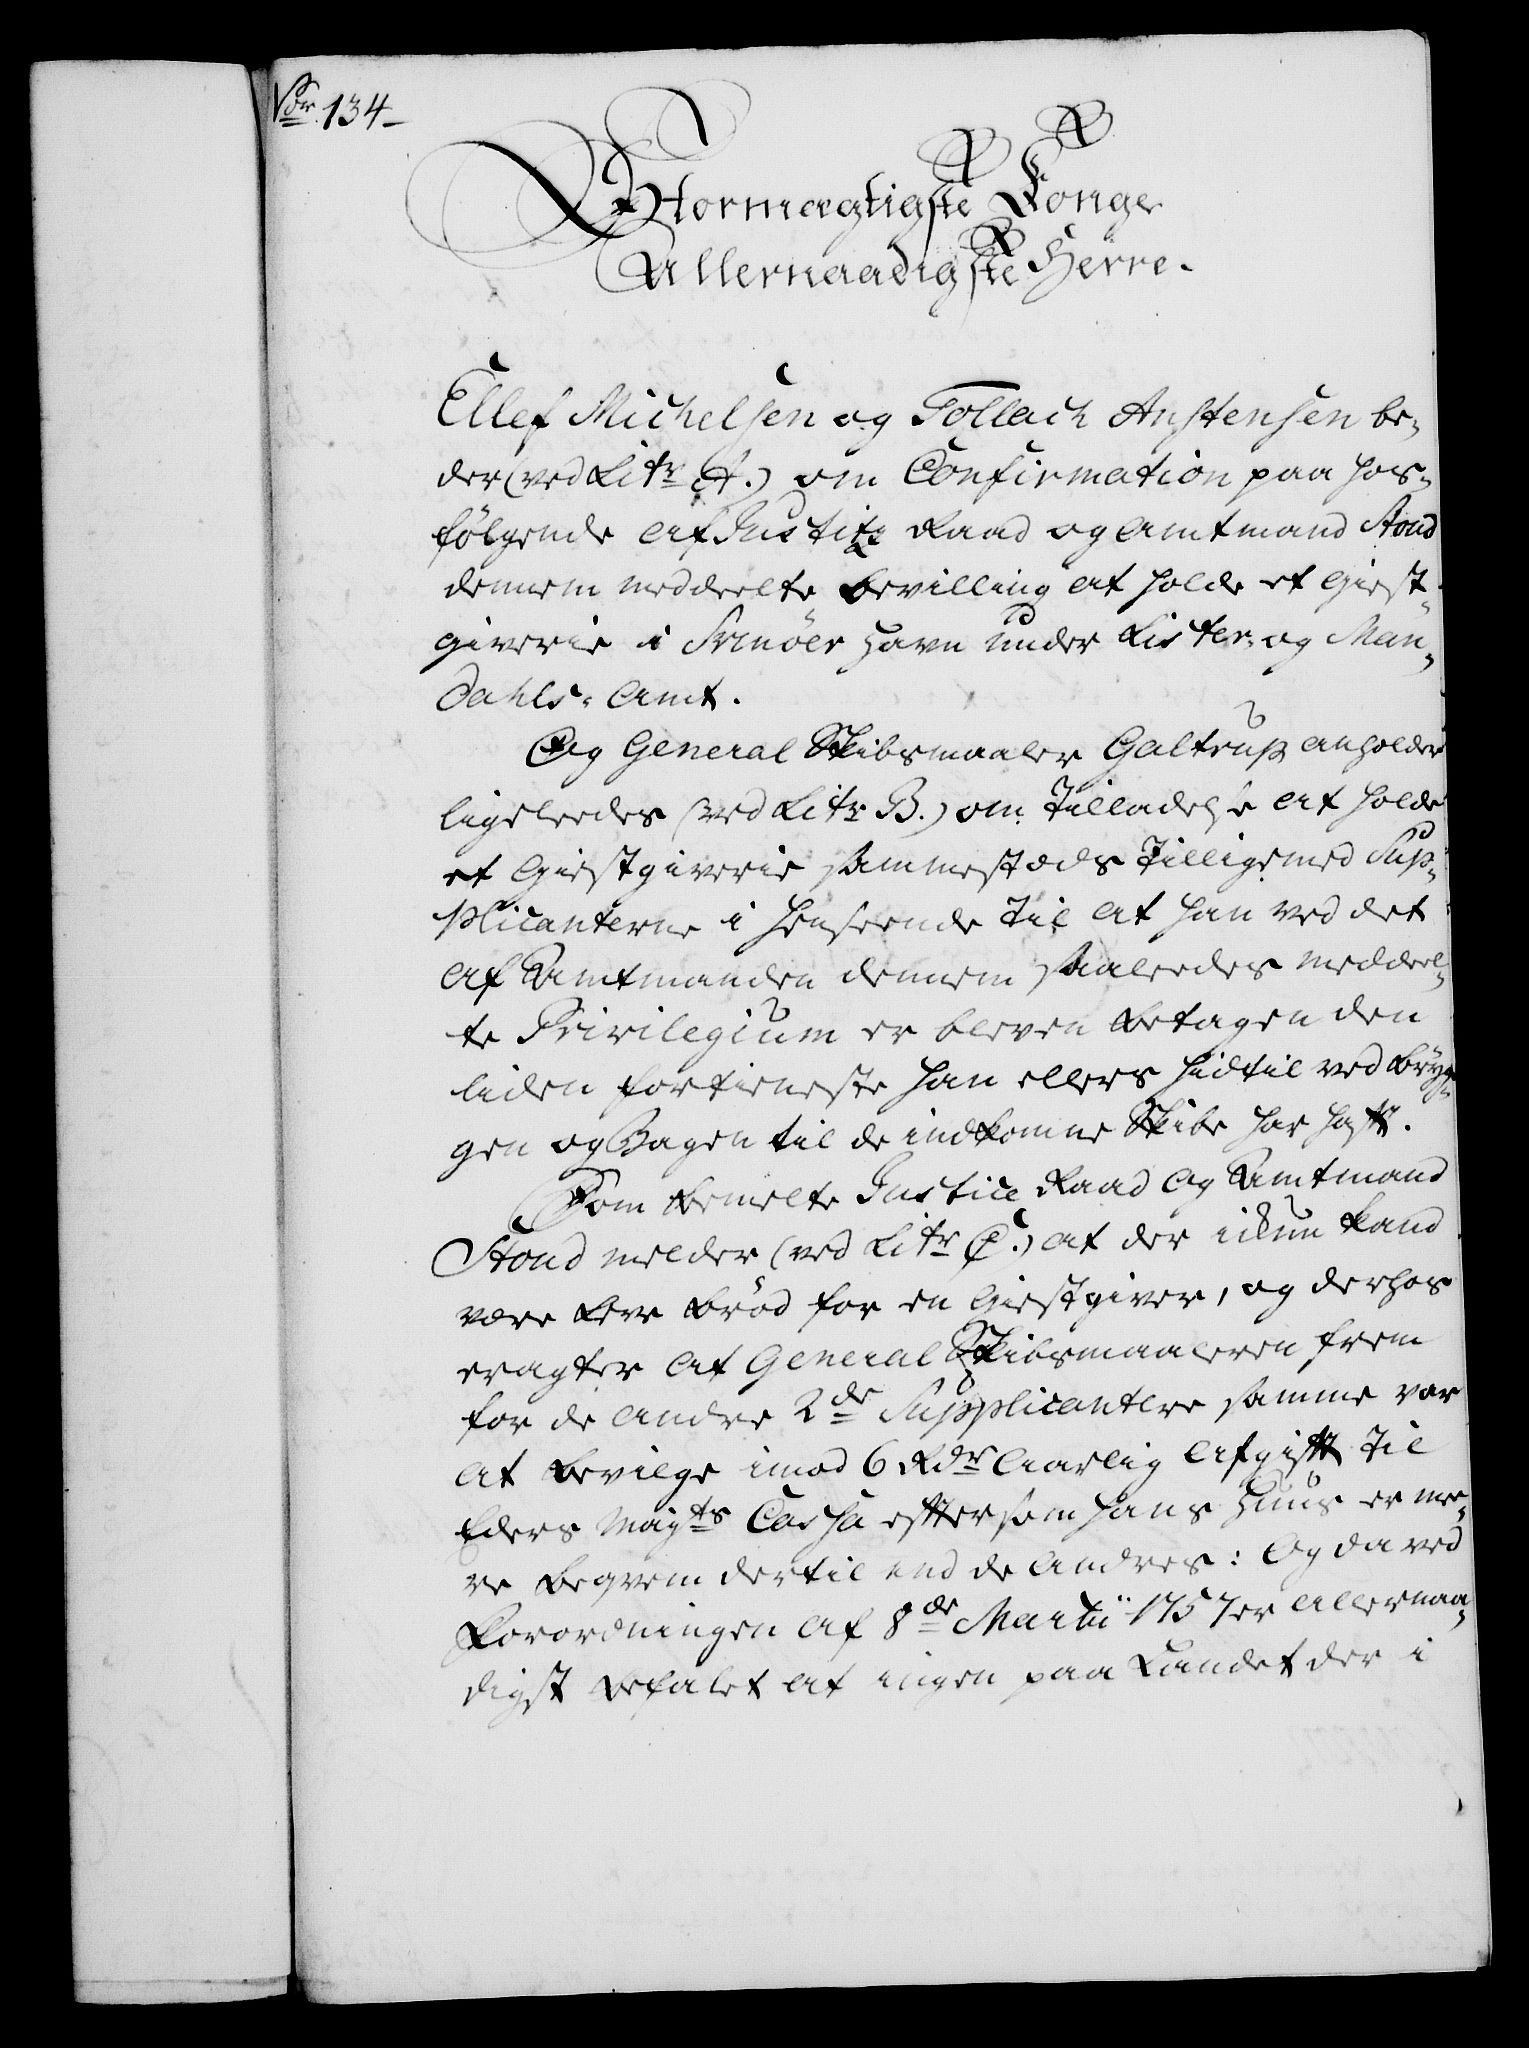 No 134_
Stormægtigste Konge
Allernaadigste Herre.
Ellef Michelsen og Tollach Anstensen be,
der (ved Litr A.) om Confirmation paa hos,
følgende af Justitz Raad og Amtmand Stoud
dennem meddeelte bevilling at holde et Giest,
giverie i Svinöer Havn under Lister, og Man,
dahls, Amt.
Og General Skibsmaaler Galtrup anholder
ligeleedes (ved Litr B.) om Tilladelse at holde
et Giestgiverie sammestæds tilligemed Sup,
plicanterne i henseende til at han ved det
af Amtmanden dennem saaleedes meddeel,
te Privilegium er bleven betagen den
liden fortieneste han ellers hidtil ved Bryg,
gen og Bagen til de indkomne Skibe har hafft.
Som bemelte Justice Raad og Amtmand
Stoud melder (ved Litr C.) at der ikun kand
være Leve Brød for en Giestgiver, og derhos
eragter at General Skibsmaaleren frem
for de andre 2de Supplicantere samme var
at bevilge imod 6 Rdr aarlig Afgifft til
Eders Maÿts Cassa efftersom hans Huus er me,
re beqvem dertil end de andres: Og da ved
Forordningen af 8de Martii 1757 er allernaa,
digst befalet at ingen paa Landet der i